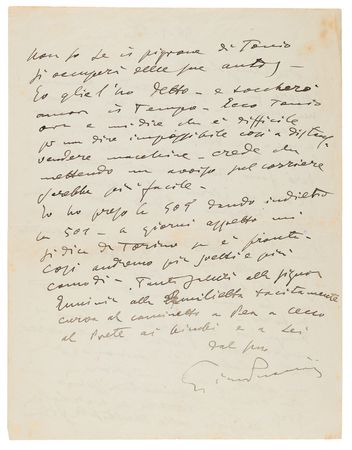 non so se il pigrone di Tonio
si occuperà della sua auto
Io glie l'ho detto - e
ancor il tempo - Ecco Tonio
ora a mi dire che è difficile
per non dire impossibile così a distanza
vendere macchine - crede che
mettendo un avviso sul corriere
sarebbe più facile -
Io ho preso la 505 dando indietro
la 501 - a giorni aspetto mi
si dica da Torino se è pronta -
così andremo più svelti e più
comodi - Tanti saluti alla signora
Erminia alla Emilietta tacitamente
curva al caminetto a Bea a Cecco
al Prete ai bimbi e a Lei
dal suo